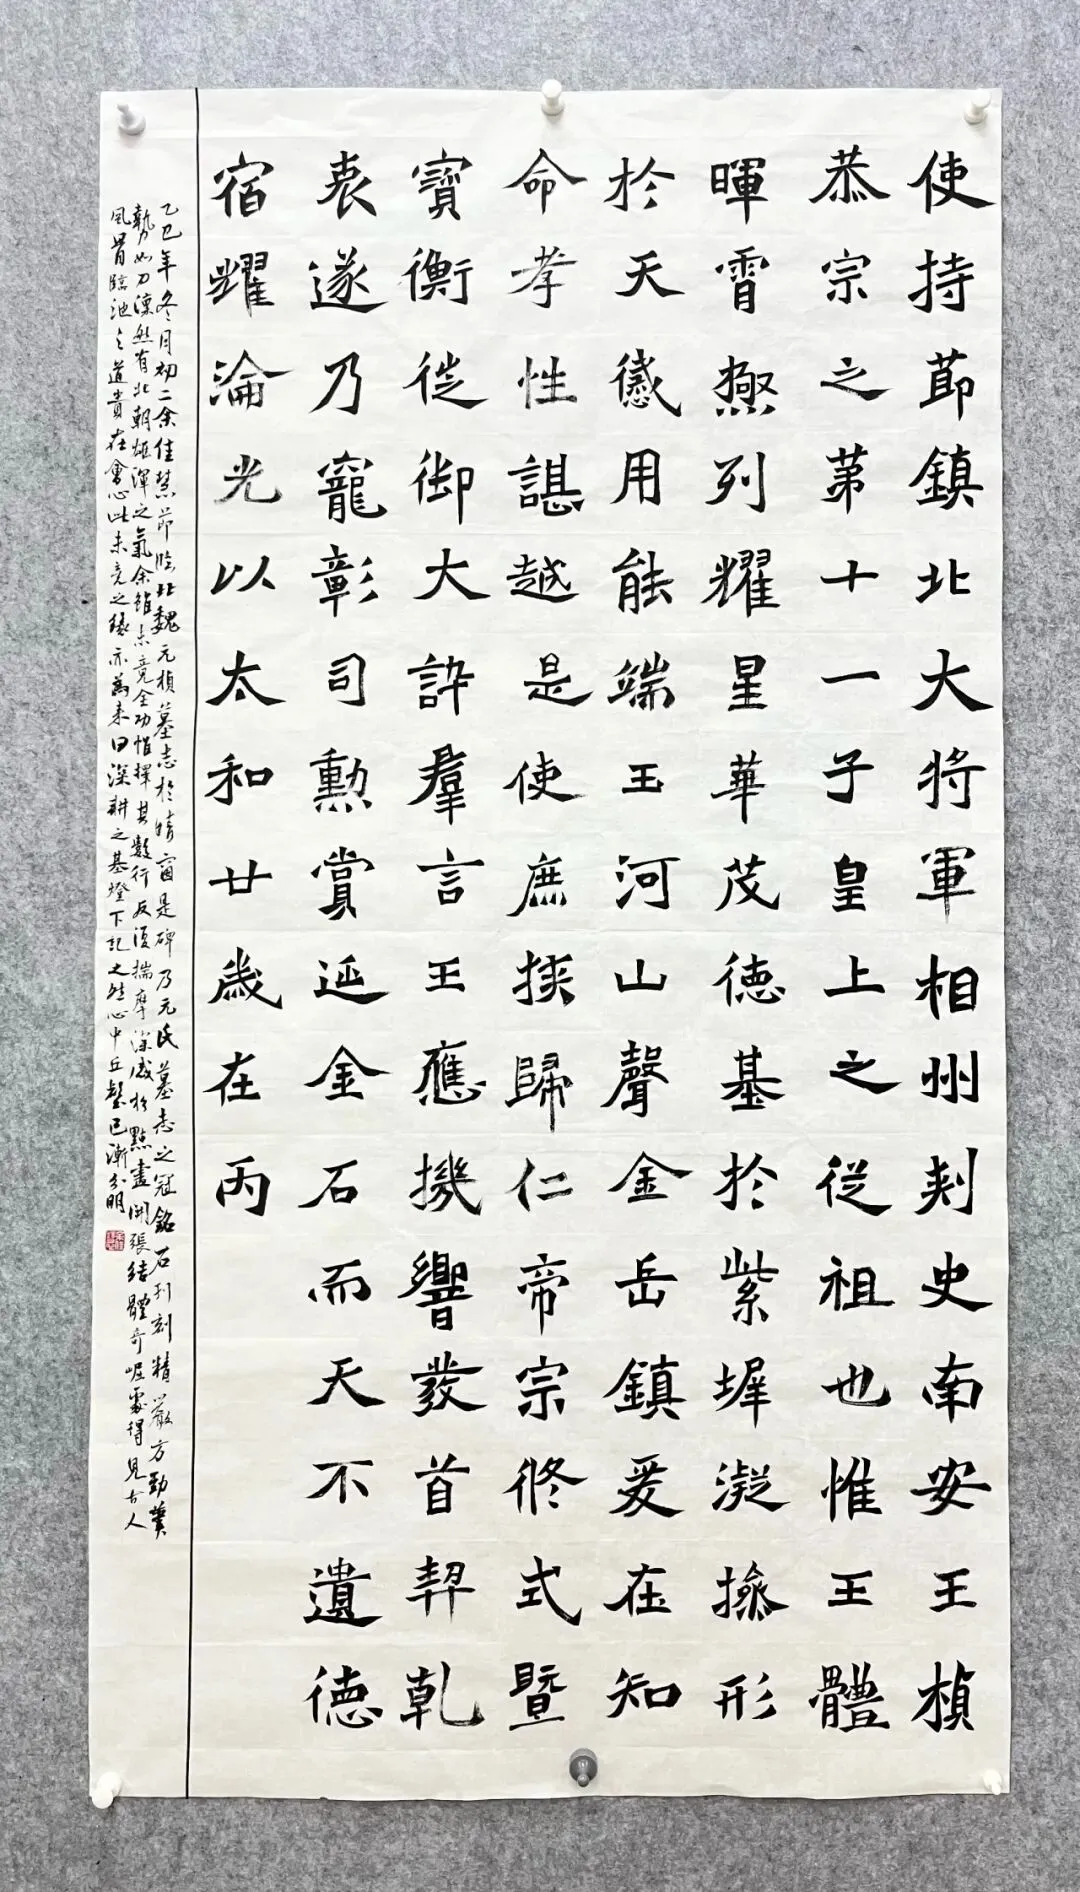 使持節鎮北大将軍相州刾史南安王楨
恭宗之苐十一子皇上之從祖也惟王體
暉霄㷡列耀星華茂德基於紫墀凝操形
於天感用能端玉河山聲金岳鎮爰在知
命孝性諶越是使庶族歸仁帝宗脩式暨
寳衡徙御大訢羣言王應機響發首契乾
衷遂乃寵彰司勳賞延金石而天不遺德
宿耀淪光以太和廿歲在丙
乙巳年冬月初二余佳慧節臨北魏元楨墓志於晴窗是碑乃元氏墓志之冠銘石刊刻精嚴方勁
勢如刀凛然有北朝雄渾之氣余雖未竟全功惟擇其數行反復揣摩深感於點畫開張結體奇崛處得見古人
風骨臨池之道貴在會心此未竟之緣亦為来日深耕之基燈下記之然心中丘壑已漸分明